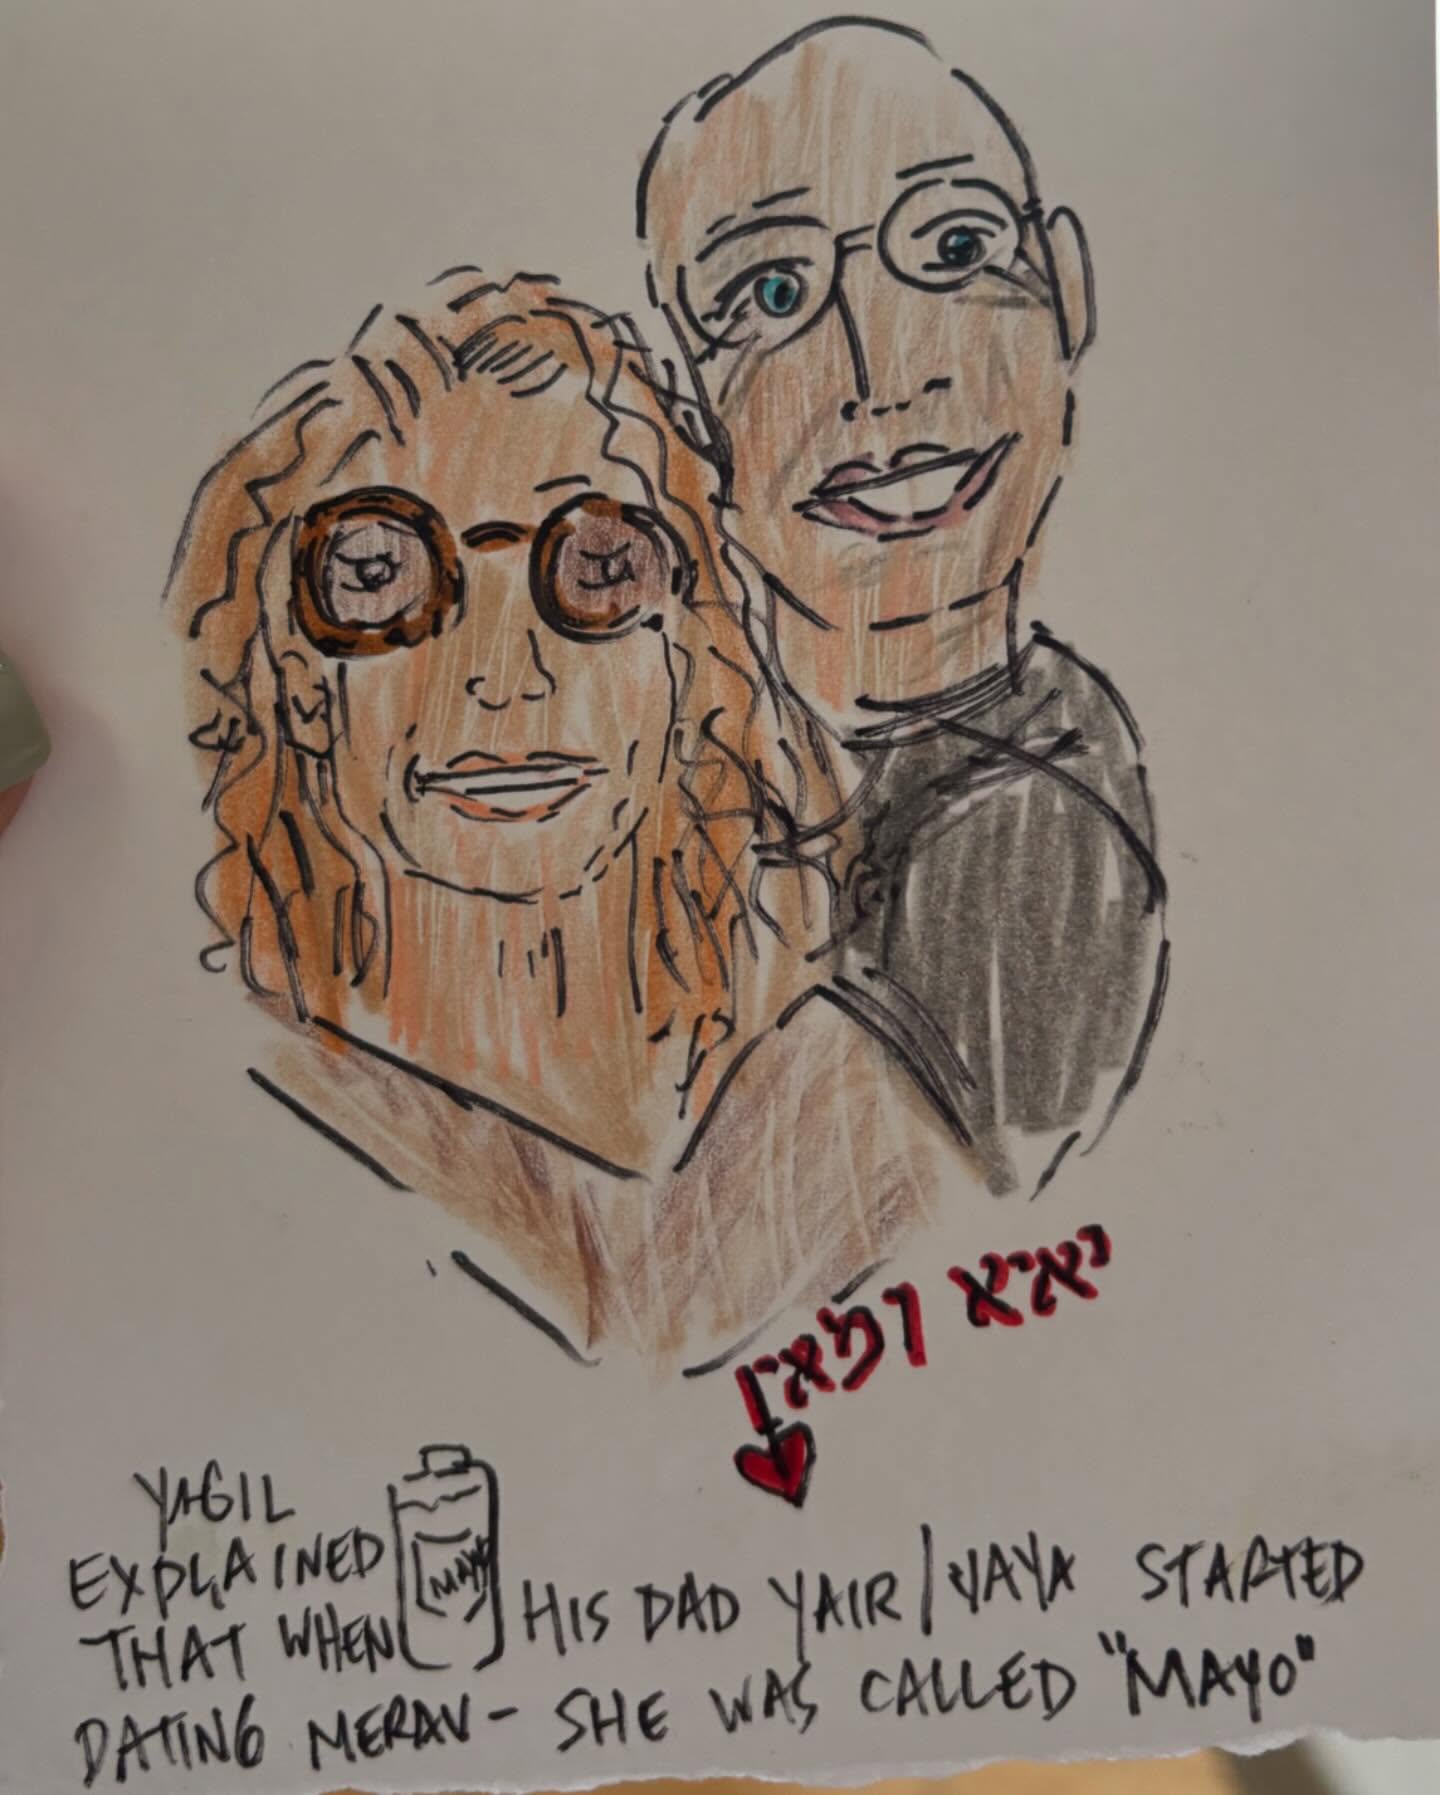 יאיא ומאיו
YAGIL
EXPLAINED
MAYO
THAT WHEN HIS DAD YAIR/YAYA STARTED
DATING MERAV - SHE WAS CALLED "MAYO"